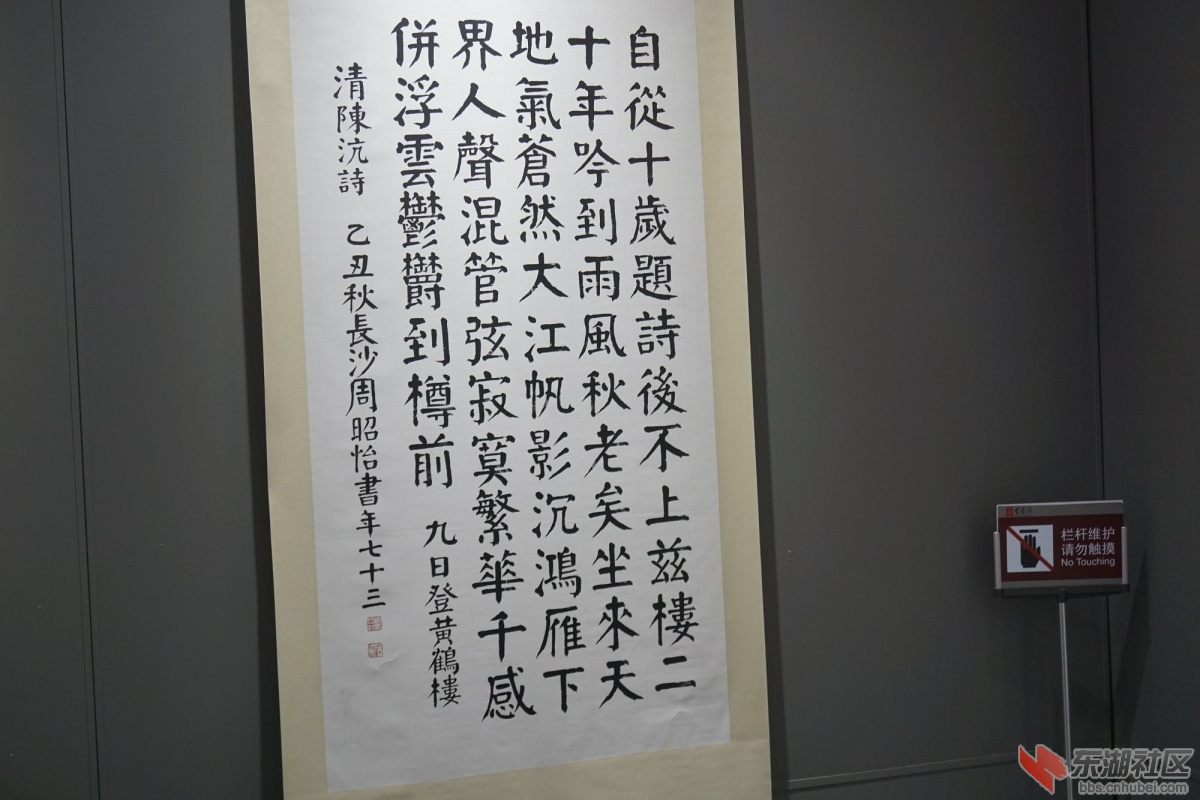 自從十歲題詩後不上茲樓二
十年吟到雨風秋老矣坐來天
地氣蒼然大江帆影沉鴻雁下
界人聲混管弦寂寞繁華千感
併浮雲鬱欝到樽前
九日登黃鶴樓
清陳沆詩
乙丑秋長沙周昭怡書年七十三
栏杆维护
请勿触摸
No Touching
东湖社区
bbs.cnhubei.com